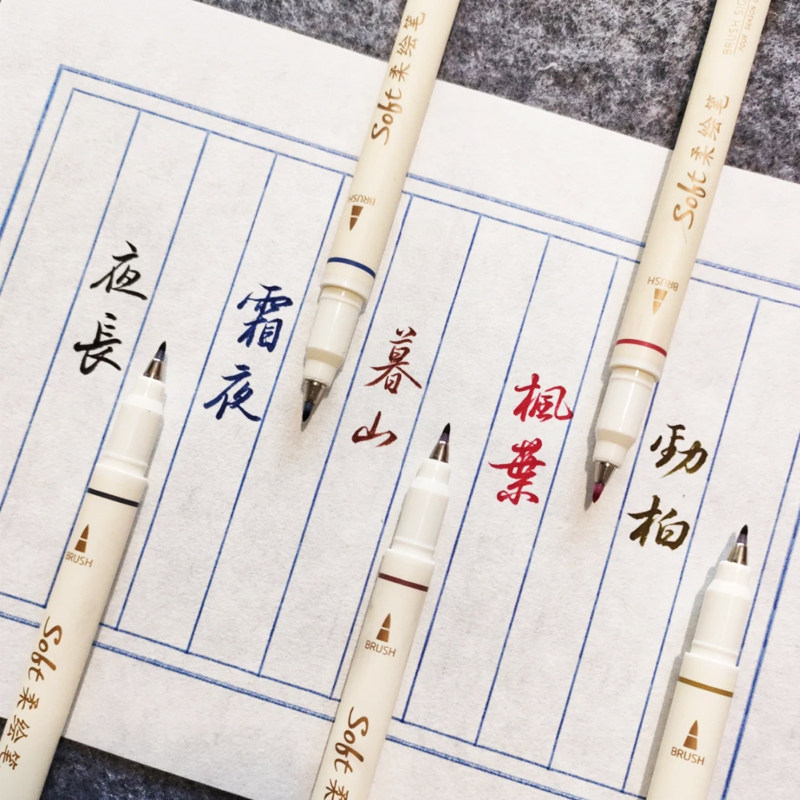 夜長
霜夜
暮山
楓葉
勁柏
Soft 柔绘笔
BRUSH
BRUSH
Soft 柔绘笔
BRUSH
BRUSH
Soft 柔绘笔
BRUSH
Soft 柔
BRUSH